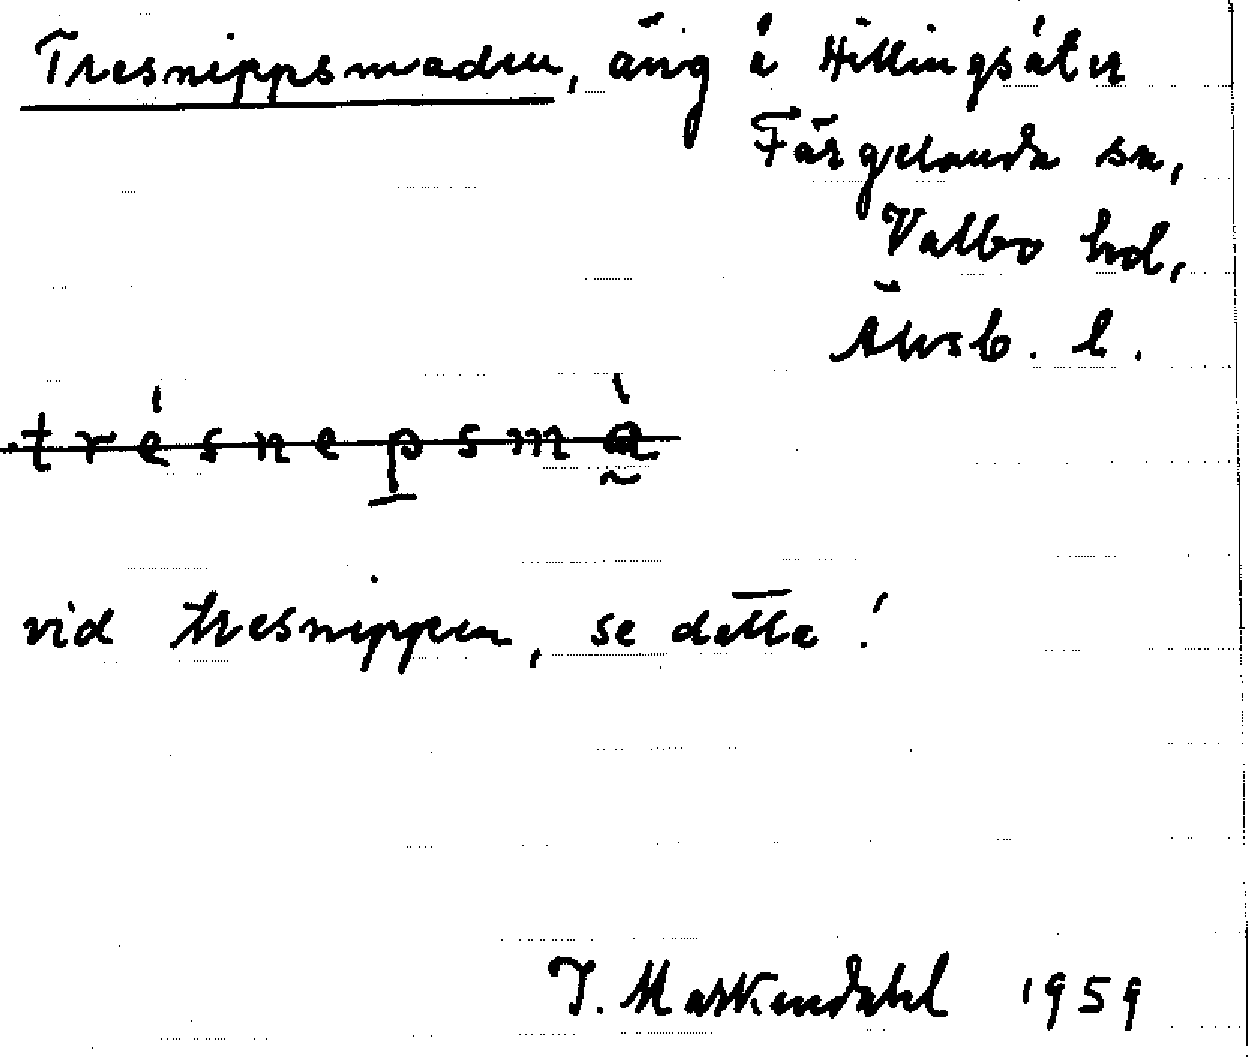 Tresnippsmaden, äng å Hillingsäter
Färgelanda sn,
Valbo hd,
Älvsb. l.
trésnepsmà̰
vid Tresnippen, se detta!
T. Markendahl 1959